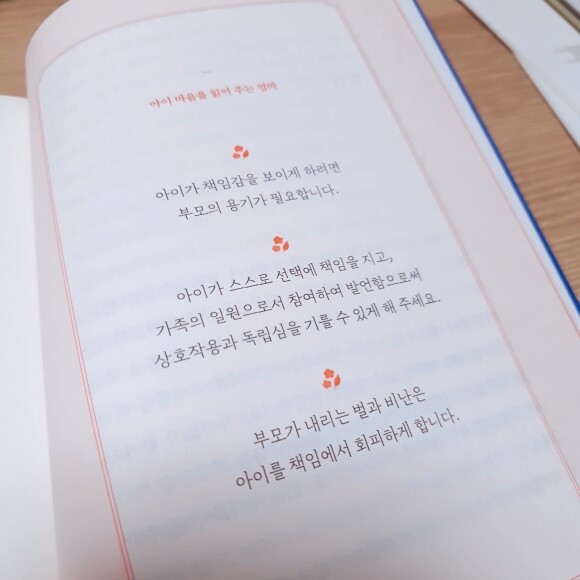 아이 마음을 읽어 주는 엄마
아이가 책임감을 보이게 하려면
부모의 용기가 필요합니다.
아이가 스스로 선택에 책임을 지고,
가족의 일원으로서 참여하여 발언함으로써
상호작용과 독립심을 기를 수 있게 해 주세요.
부모가 내리는 벌과 비난은
아이를 책임에서 회피하게 합니다.